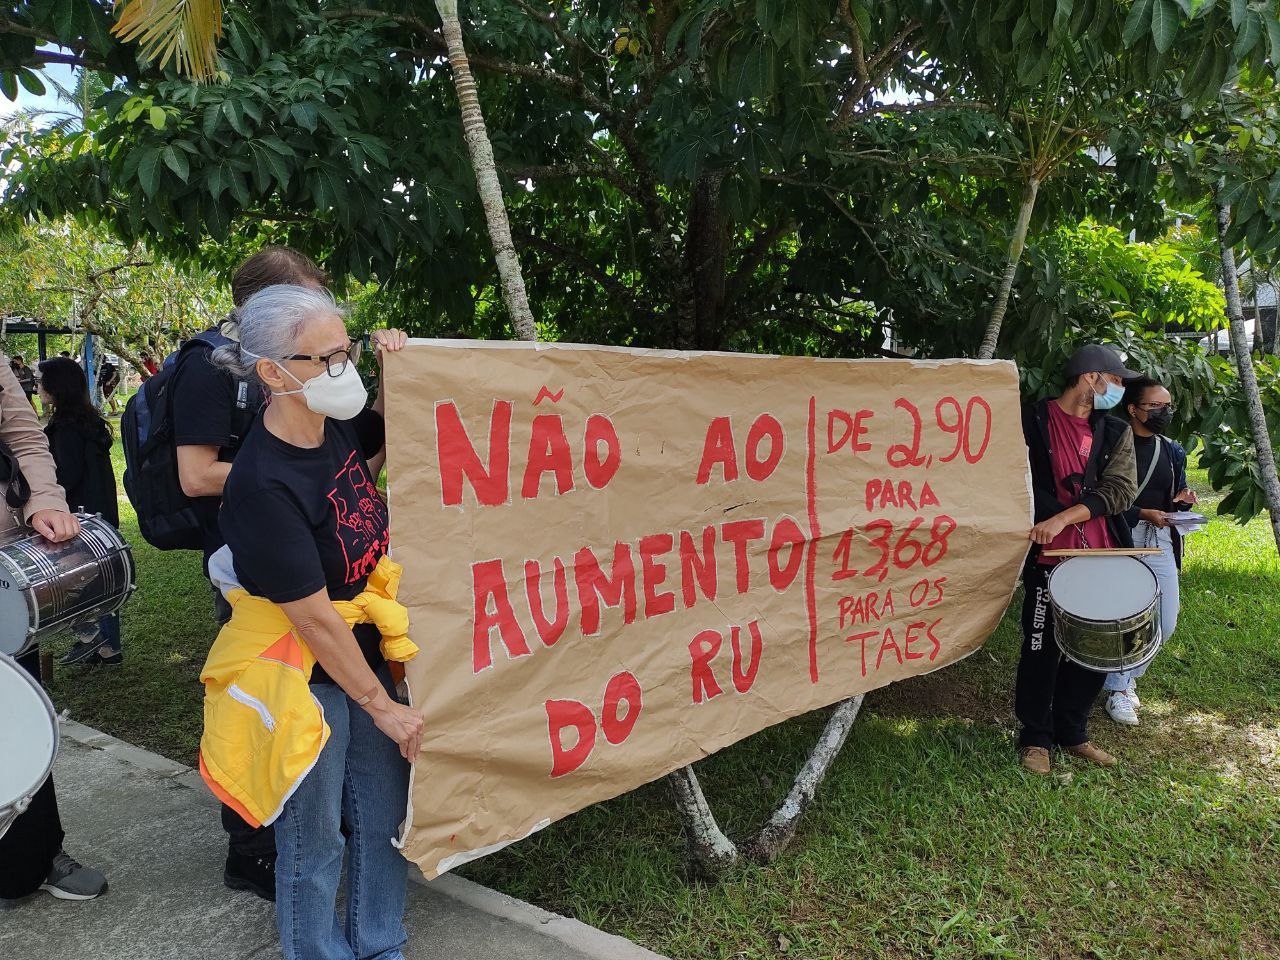 NÃO AO
AUMENTO
DO RU
DE 2,90
PARA
13,68
PARA OS
TAES
SEA SURF